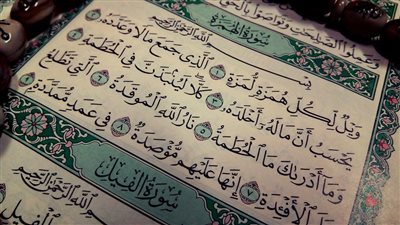 وَعَمِلُوا۟ ٱلصَّٰلِحَٰتِ وَتَوَاصَوْا۟ بِٱلْحَقِّ
سُورَةُ الْهُمَزَةِ
بِسْمِ ٱللَّهِ ٱلرَّحْمَٰنِ ٱلرَّحِيمِ
وَيْلٌ لِّكُلِّ هُمَزَةٍ لُّمَزَةٍ ١ ٱلَّذِى جَمَعَ مَالًا وَعَدَّدَهُۥ ٢
يَحْسَبُ أَنَّ مَالَهُۥٓ أَخْلَدَهُۥ ٣ كَلَّا لَيُنۢبَذَنَّ فِى ٱلْحُطَمَةِ ٤
وَمَآ أَدْرَىٰكَ مَا ٱلْحُطَمَةُ ٥ نَارُ ٱللَّهِ ٱلْمُوقَدَةُ ٦ ٱلَّتِى تَطَّلِعُ
ٱلْأَفْـِٔدَةِ ٧ إِنَّهَا عَلَيْهِم مُّؤْصَدَةٌ ٨ فِى عَمَدٍ مُّمَدَّدَةٍۭ
سُورَةُ الْفِيلِ
بِسْمِ ٱللَّهِ ٱلرَّحْمَٰنِ ٱلرَّحِيمِ
ٱلْفِيلِ